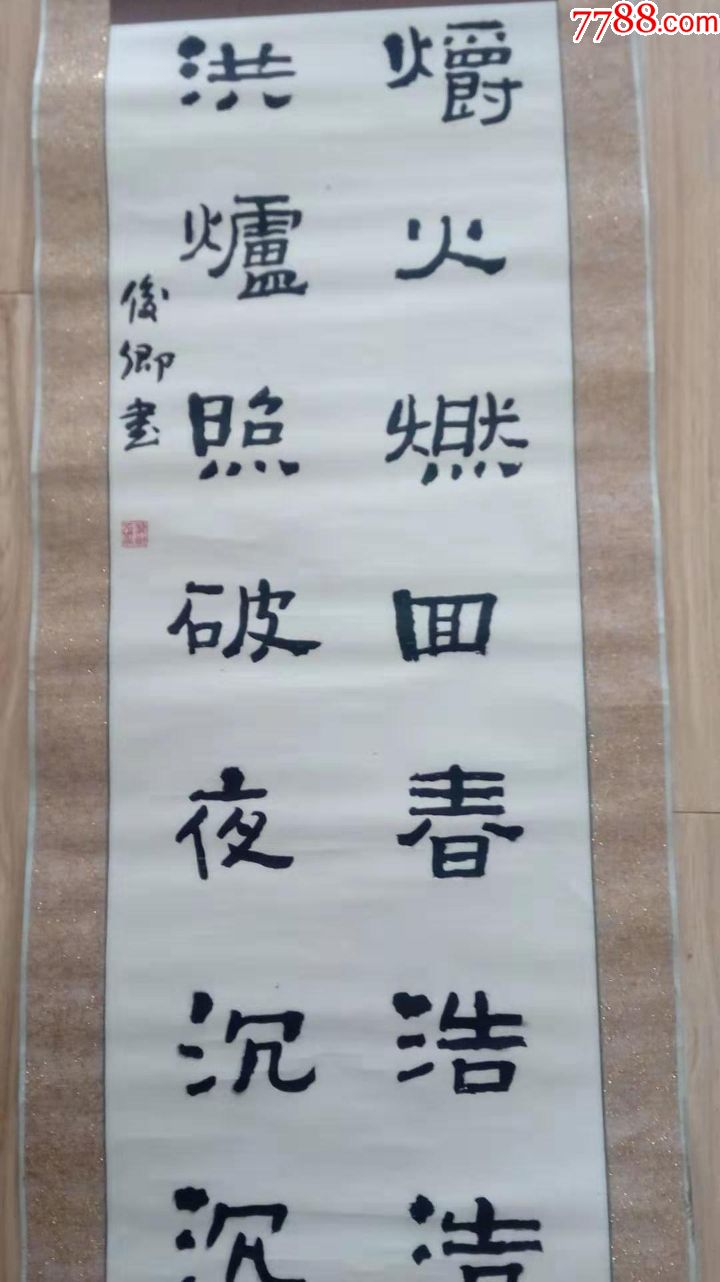 7788.com
爝火燃回春浩浩
洪爐照破夜沉沉
俊卿书